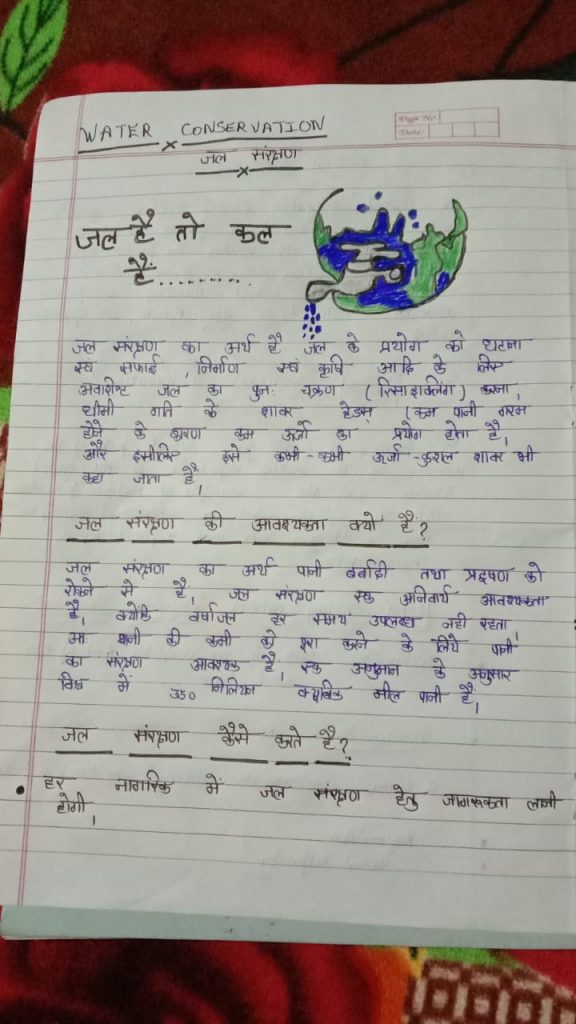 WATER CONSERVATION
जल संरक्षण
जल है तो कल
है.........
जल संरक्षण का अर्थ है जल के प्रयोग को घटाना
एवं सफाई, निर्माण एवं कृषि आदि के लिए
अवशिष्ट जल का पुनः चक्रण (रिसाइक्लिंग) करना,
धीमी गति के शावर हेडस् (कम पानी गरम
होने के कारण कम ऊर्जा का प्रयोग होता है,
और इसीलिए इसे कभी-कभी ऊर्जा-कुशल शावर भी
कहा जाता है।
जल संरक्षण की आवश्यकता क्यो है?
जल संरक्षण का अर्थ पानी बर्बादी तथा प्रदूषण को
रोकने से है। जल संरक्षण एक अनिवार्य आवश्यकता
है, क्योंकि वर्षाजल हर समय उपलब्ध नही रहता,
अतः पानी की कमी को पूरा करने के लिये पानी
का संरक्षण आवश्यक है, एक अनुमान के अनुसार
विश्व में 350 मिलियन क्यूबिक मील पानी है।
जल संरक्षण कैसे करते है?
• हर नागरिक में जल संरक्षण हेतु जागरूकता लानी
होगी।